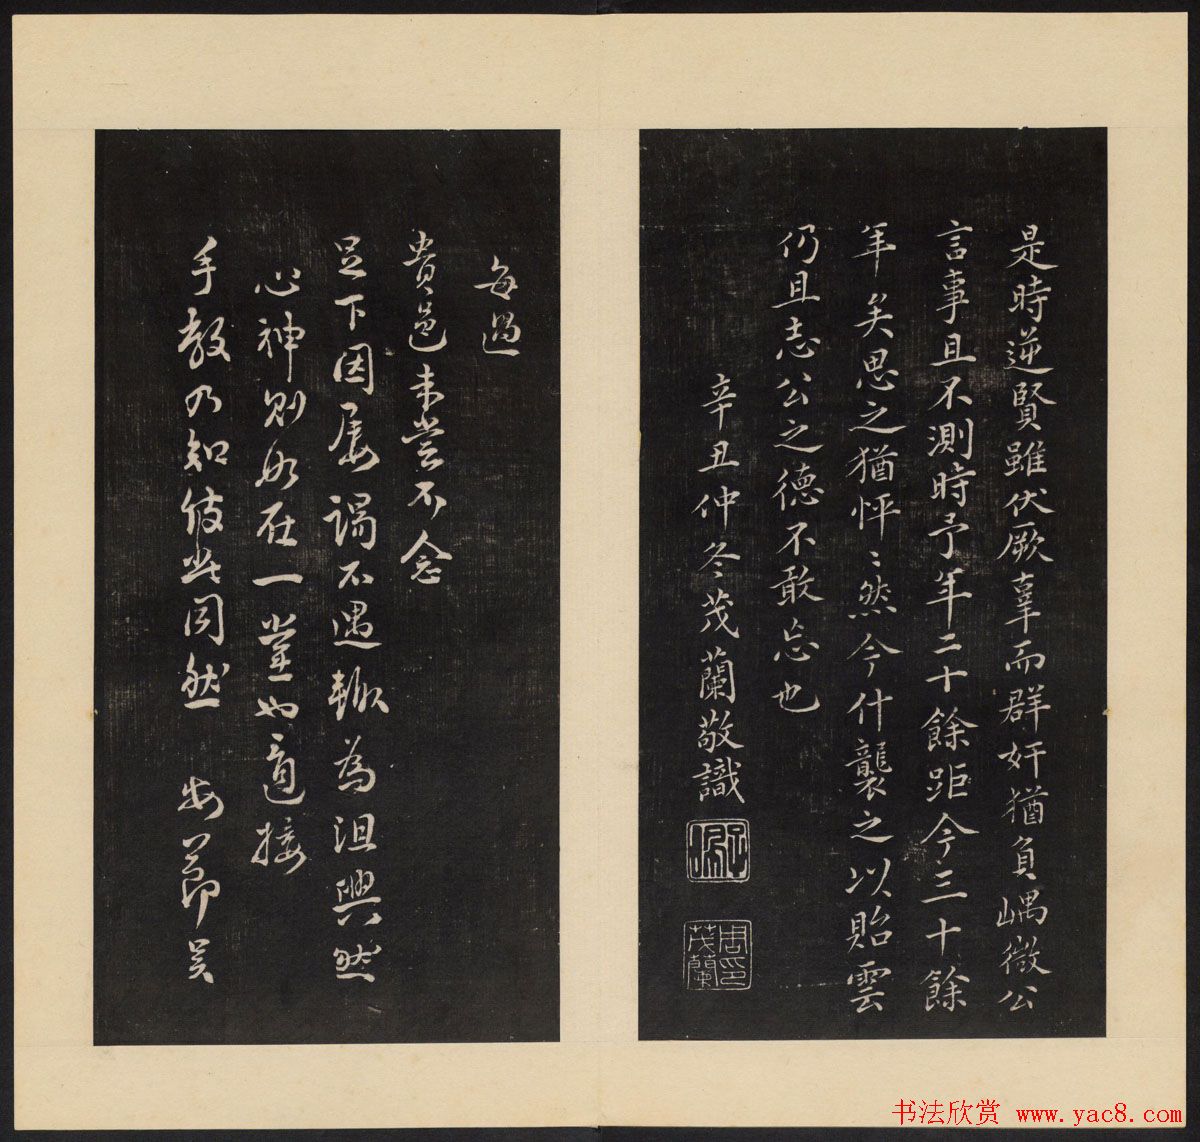 是時逆賢雖伏厥辜而群奸猶負嵎微公
言事且不測時予年二十餘距今三十餘
年矣思之猶怦〻然今什襲之以貽雲
仍且志公之德不敢忘也
辛丑仲冬茂蘭敬識
周茂蘭印
每過
貴邑未嘗不念
足下因屡謁不遇輙為沮興然
心神則如在一堂也適接
手教乃知彼此同然
书法欣赏 www.yac8.com